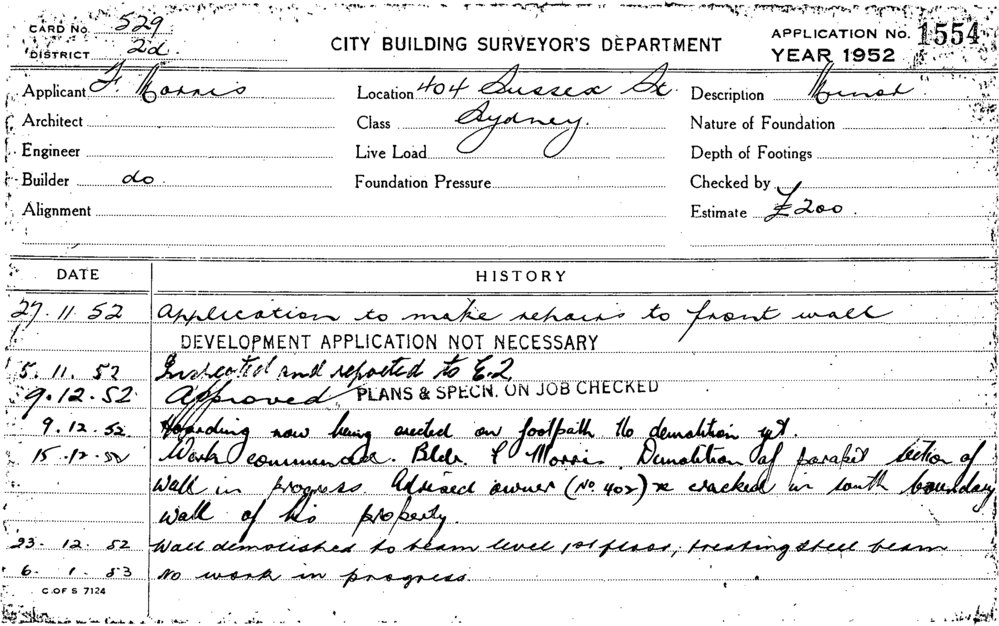 CARD No. 529
DISTRICT 2d
CITY BUILDING SURVEYOR'S DEPARTMENT
APPLICATION No. 1554
YEAR 1952
Applicant F. Morris
Location 404 Sussex St.
Description
Architect
Class Sydney.
Nature of Foundation
Engineer
Live Load
Depth of Footings
Builder do
Foundation Pressure
Checked by
Alignment
Estimate £200
DATE HISTORY
27.11.52 Application to make repairs to front wall
DEVELOPMENT APPLICATION NOT NECESSARY
5.11.52 Inspected and reported to E.2
9.12.52 Approved PLANS & SPECN. ON JOB CHECKED
9.12.52. Hoarding now being erected on footpath No demolition yet.
15.12.52 Work commenced. Bldr. F Morris. Demolition of parapet section of
wall in progress. Advised owner (No. 402) re cracked in south boundary
wall of his property.
23.12.52 Wall demolished to beam level 1st floor, treating steel beam
6.1.53 No work in progress.
C. OF S 7124